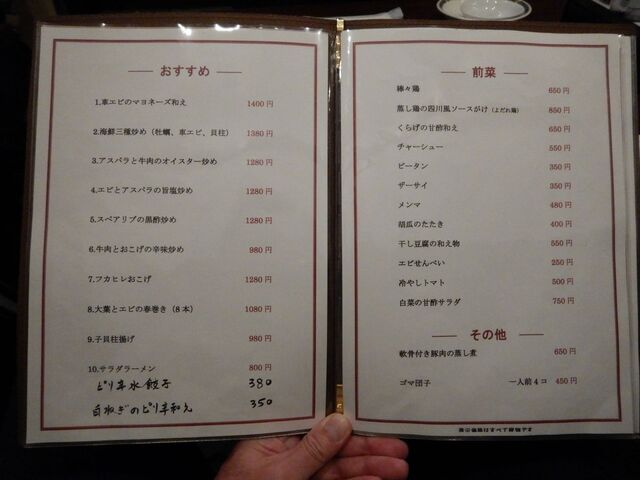 おすすめ
1.車エビのマヨネーズ和え 1400円
2.海鮮三種炒め（牡蠣、車エビ、貝柱） 1380円
3.アスパラと牛肉のオイスター炒め 1280円
4.エビとアスパラの旨塩炒め 1280円
5.スペアリブの黒酢炒め 1280円
6.牛肉とおこげの辛味炒め 980円
7.フカヒレおこげ 1280円
8.大葉とエビの春巻き（8本） 1080円
9.子貝柱揚げ 980円
10.サラダラーメン 800円
ピリ辛水餃子 380
白ねぎのピリ辛和え 350
前菜
棒々鶏 650円
蒸し鶏の四川風ソースがけ（よだれ鶏） 850円
くらげの甘酢和え 650円
チャーシュー 550円
ピータン 350円
ザーサイ 350円
メンマ 480円
胡瓜のたたき 400円
干し豆腐の和え物 550円
エビせんべい 250円
冷やしトマト 500円
白菜の甘酢サラダ 750円
その他
軟骨付き豚肉の蒸し煮 650円
ゴマ団子 一人前4コ 450円